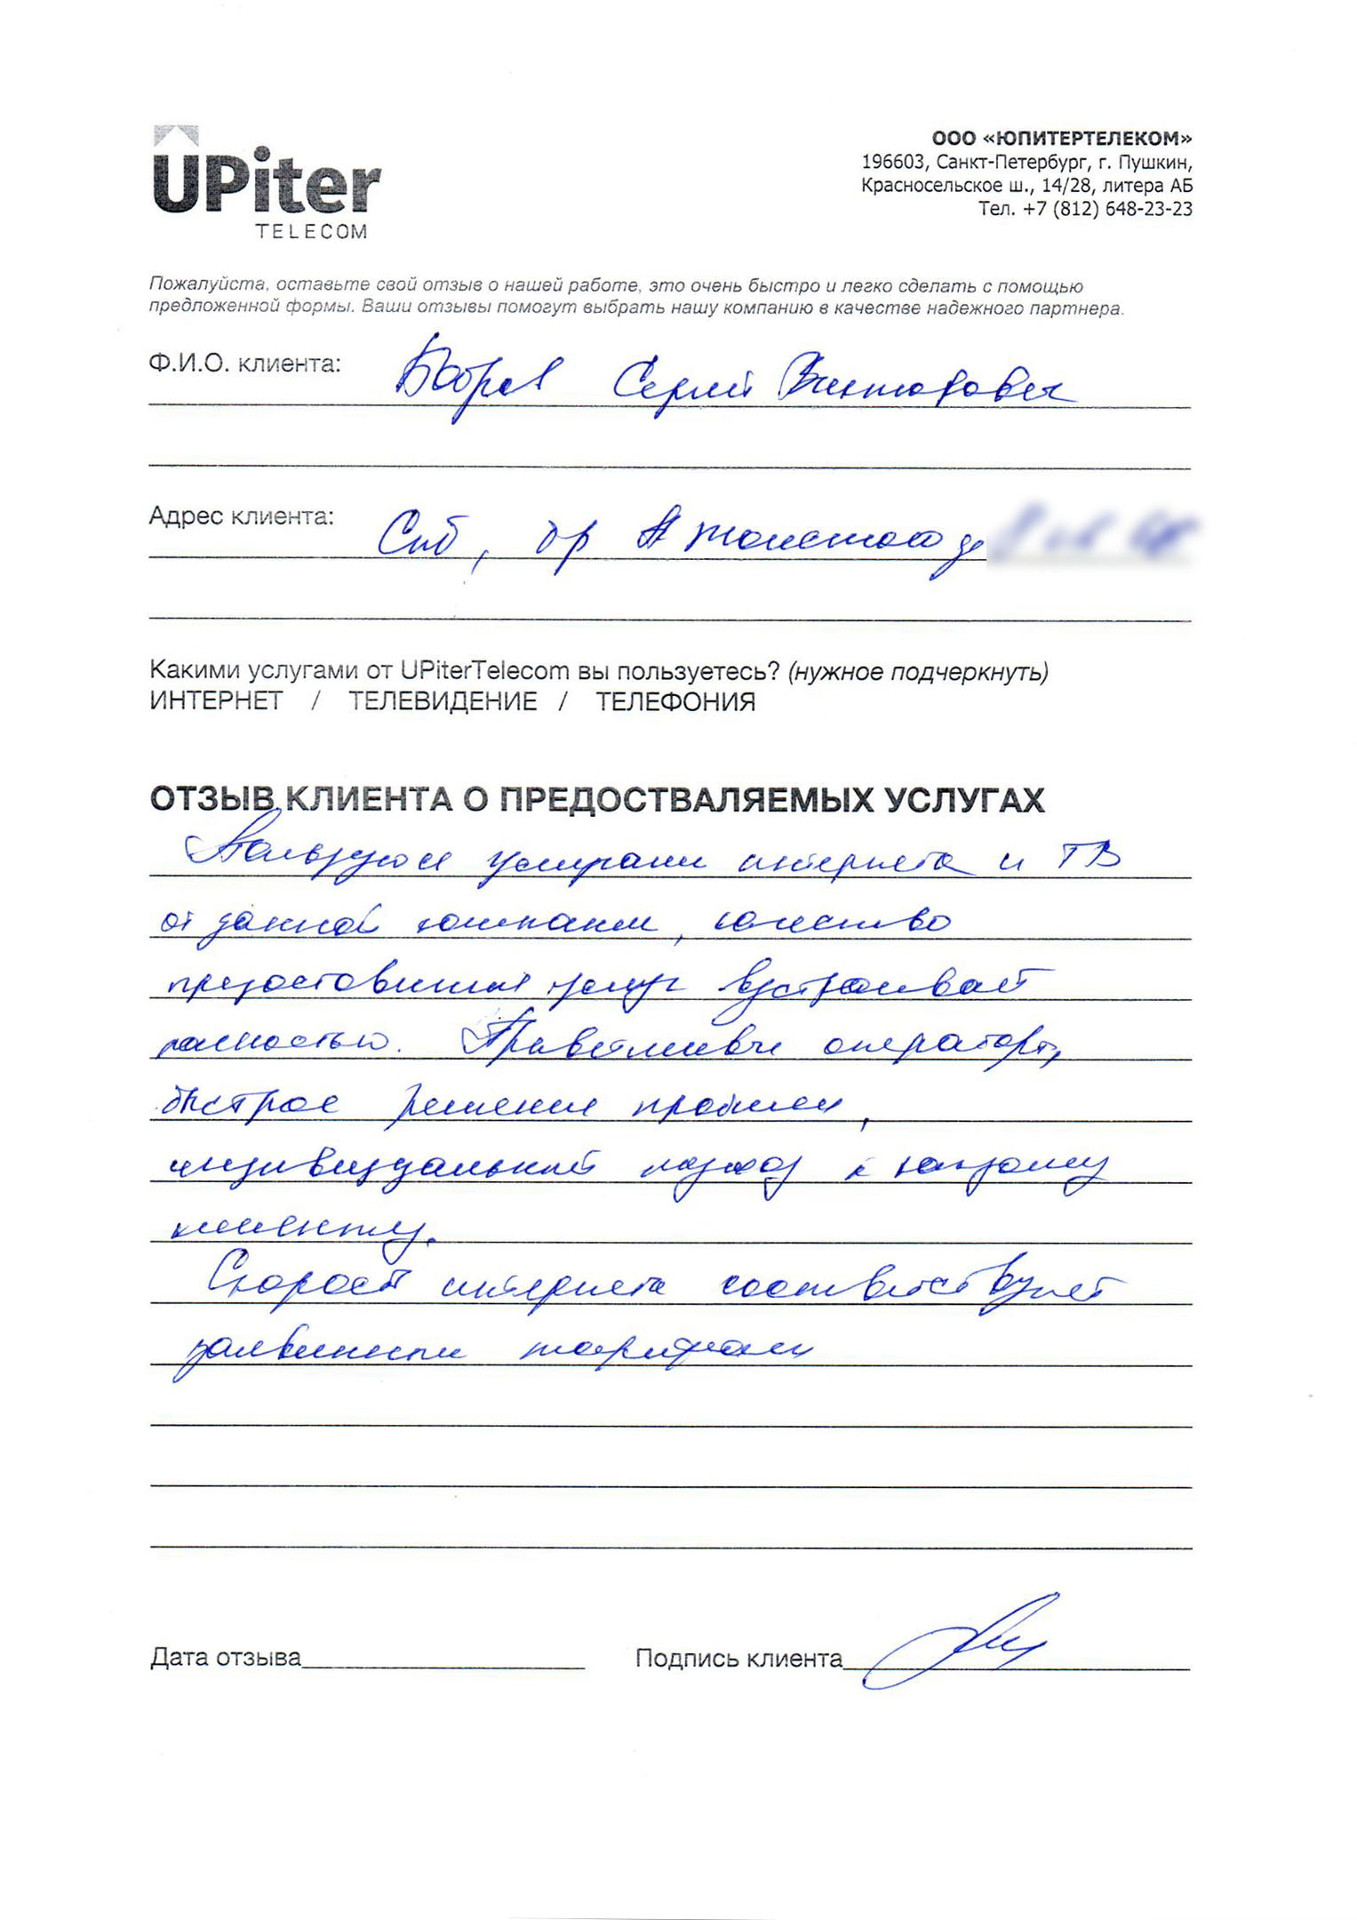 UPiter
TELECOM
ООО «ЮПИТЕРТЕЛЕКОМ»
196603, Санкт-Петербург, г. Пушкин,
Красносельское ш., 14/28, литера АБ
Тел. +7 (812) 648-23-23
Пожалуйста, оставьте свой отзыв о нашей работе, это очень быстро и легко сделать с помощью
предложенной формы. Ваши отзывы помогут выбрать нашу компанию в качестве надежного партнера.
Ф.И.О. клиента: Бобров Сергей Викторович
Адрес клиента: Спб, пр А Толстого д
Какими услугами от UPiterTelecom вы пользуетесь? (нужное подчеркнуть)
ИНТЕРНЕТ / ТЕЛЕВИДЕНИЕ / ТЕЛЕФОНИЯ
ОТЗЫВ КЛИЕНТА О ПРЕДОСТВАЛЯЕМЫХ УСЛУГАХ
Пользуюсь услугами интернета и ТВ
от данной компании, качество
предоставления услуг устраивает
полностью. Приветливые операторы,
быстрое решение проблем,
индивидуальный подход к каждому
клиенту.
Скорость интернета соответствует
заявленным тарифам
Дата отзыва
Подпись клиента